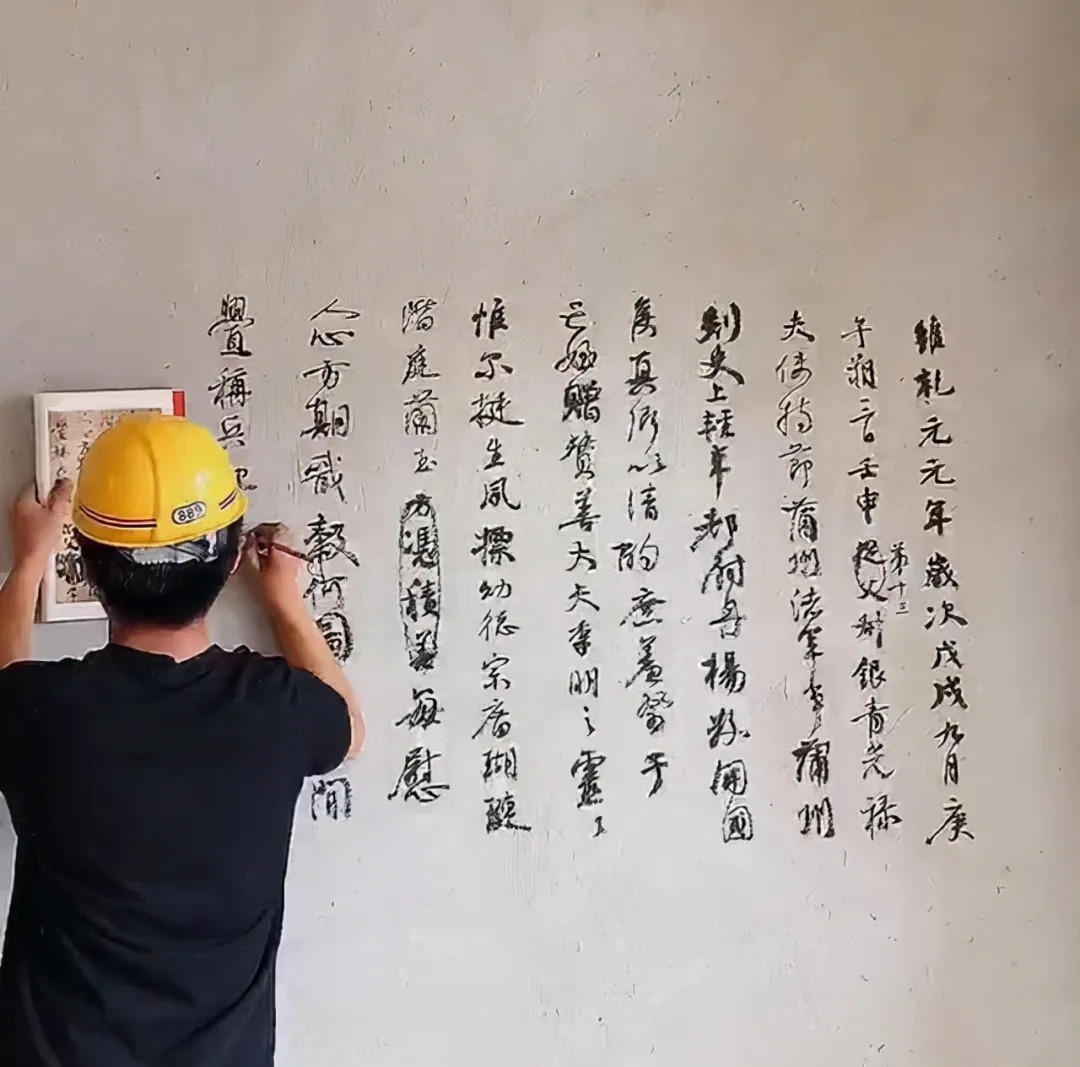 維乹元元年歲次戊戌九月庚
午朔三日壬申第十三從父叔銀青光祿
夫使持節蒲州諸軍事蒲州
刺史上輕車都尉丹楊縣開國
侯真卿以清酌庶羞祭于
亡姪贈贊善大夫季明之靈曰
惟尔挺生夙標幼德宗廟瑚璉
階庭蘭玉方憑積善每慰
人心方期戩穀何圖間
釁稱兵犯
889